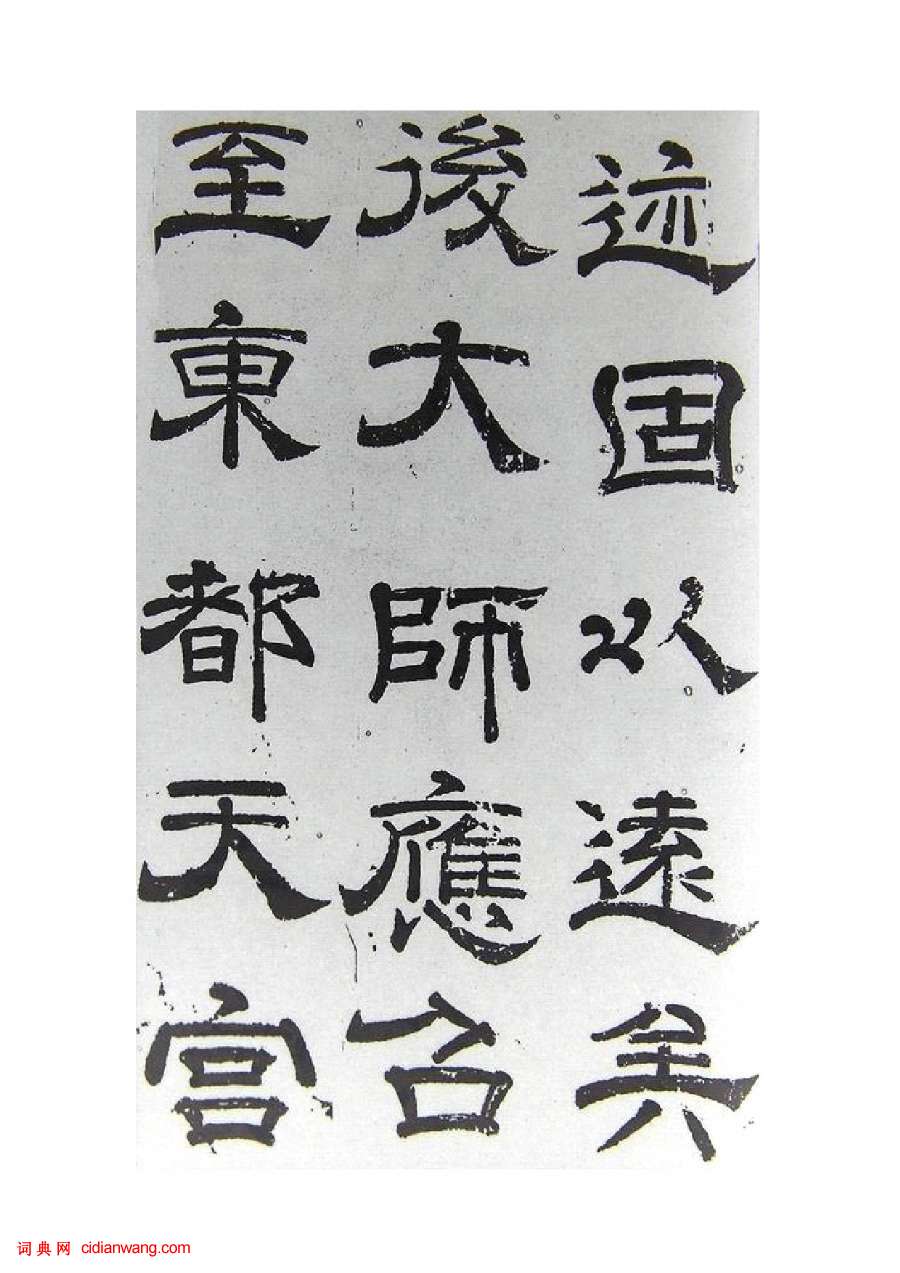 迹固以遠矣
後大師應召
至東都天宫
词典网 cidianwang.com